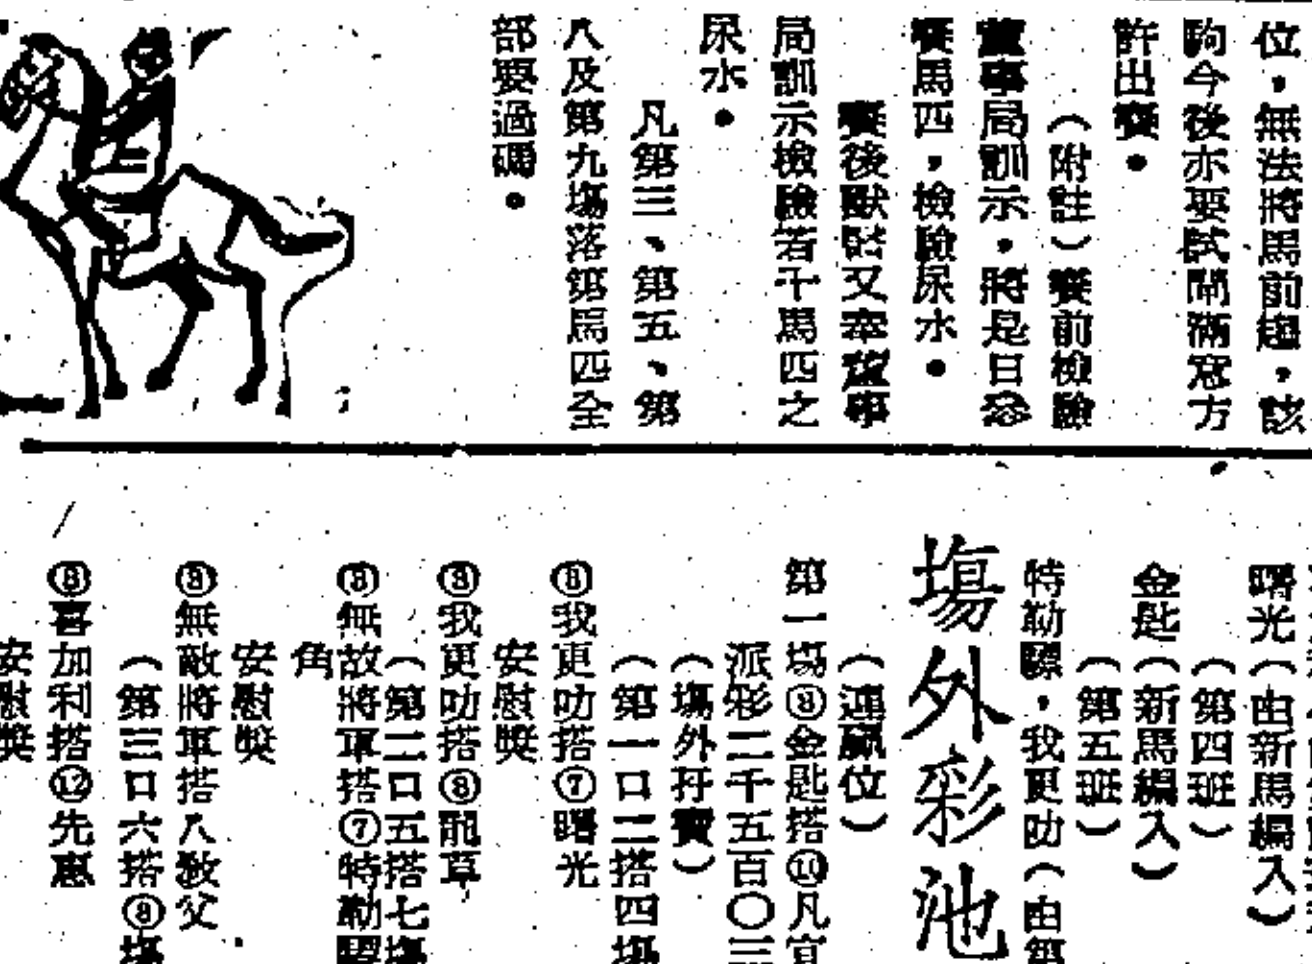 位，無法將馬前趨，該
駒今後亦要試閘滿意方
許出賽。
（附註）賽前檢驗
董事局訓示，將是日參
賽馬匹，檢驗尿水。
賽後獸醫又奉董事
局訓示檢驗若干馬匹之
尿水。
凡第三、第五、第
八及第九塲落第馬匹全
部要過磅。
曙光（由新馬編入）
（第四班）
金匙（新馬編入）
（第五班）
特勒驃，我更叻（由第
塲外彩池
（連贏位）
第一塲⑧金匙搭⑩凡宜
派彩二千五百〇三
（塲外孖寶）
（第一口二搭四塲
⑧我更叻搭⑦曙光
安慰獎
⑧我更叻搭⑧龍草
（第二口五搭七塲
③無敵將軍搭⑦特勒驃
角
安慰獎
③無敵將軍搭八教父
（第三口六搭⑧塲
⑧喜加利搭⑫先惠
安慰獎